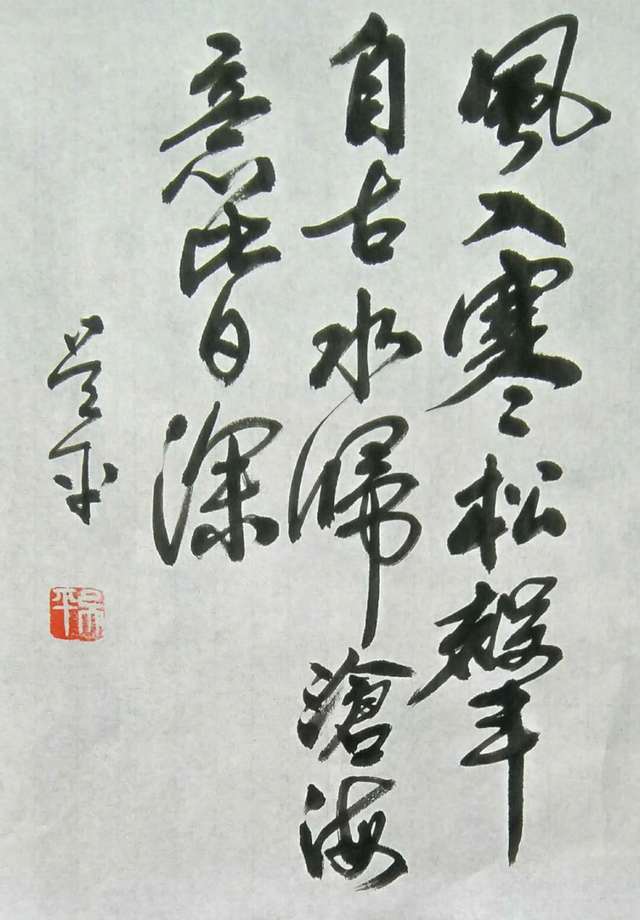 風入寒松聲
自古水歸滄海
意皆深
平
平